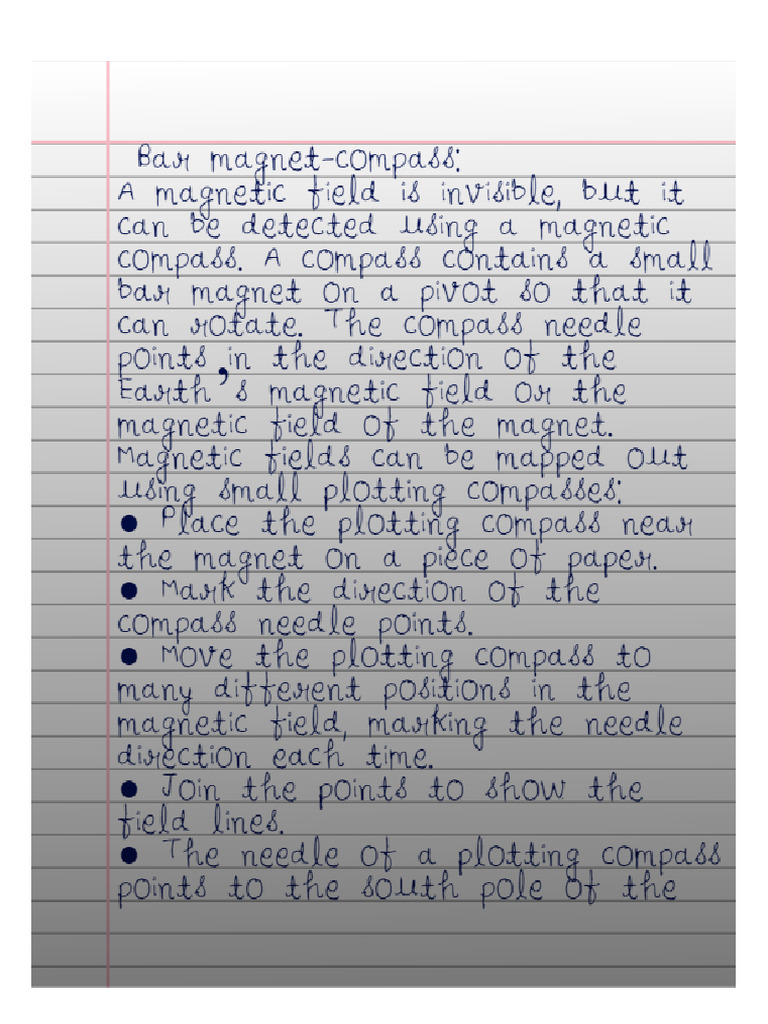 Bar magnet-compass:
A magnetic field is invisible, but it
can be detected using a magnetic
compass. A compass contains a small
bar magnet on a pivot so that it
can rotate. The compass needle
points in the direction of the
Earth's magnetic field or the
magnetic field of the magnet.
Magnetic fields can be mapped out
using small plotting compasses:
● Place the plotting compass near
the magnet on a piece of paper.
● Mark the direction of the
compass needle points.
● Move the plotting compass to
many different positions in the
magnetic field, marking the needle
direction each time.
● Join the points to show the
field lines.
● The needle of a plotting compass
points to the south pole of the